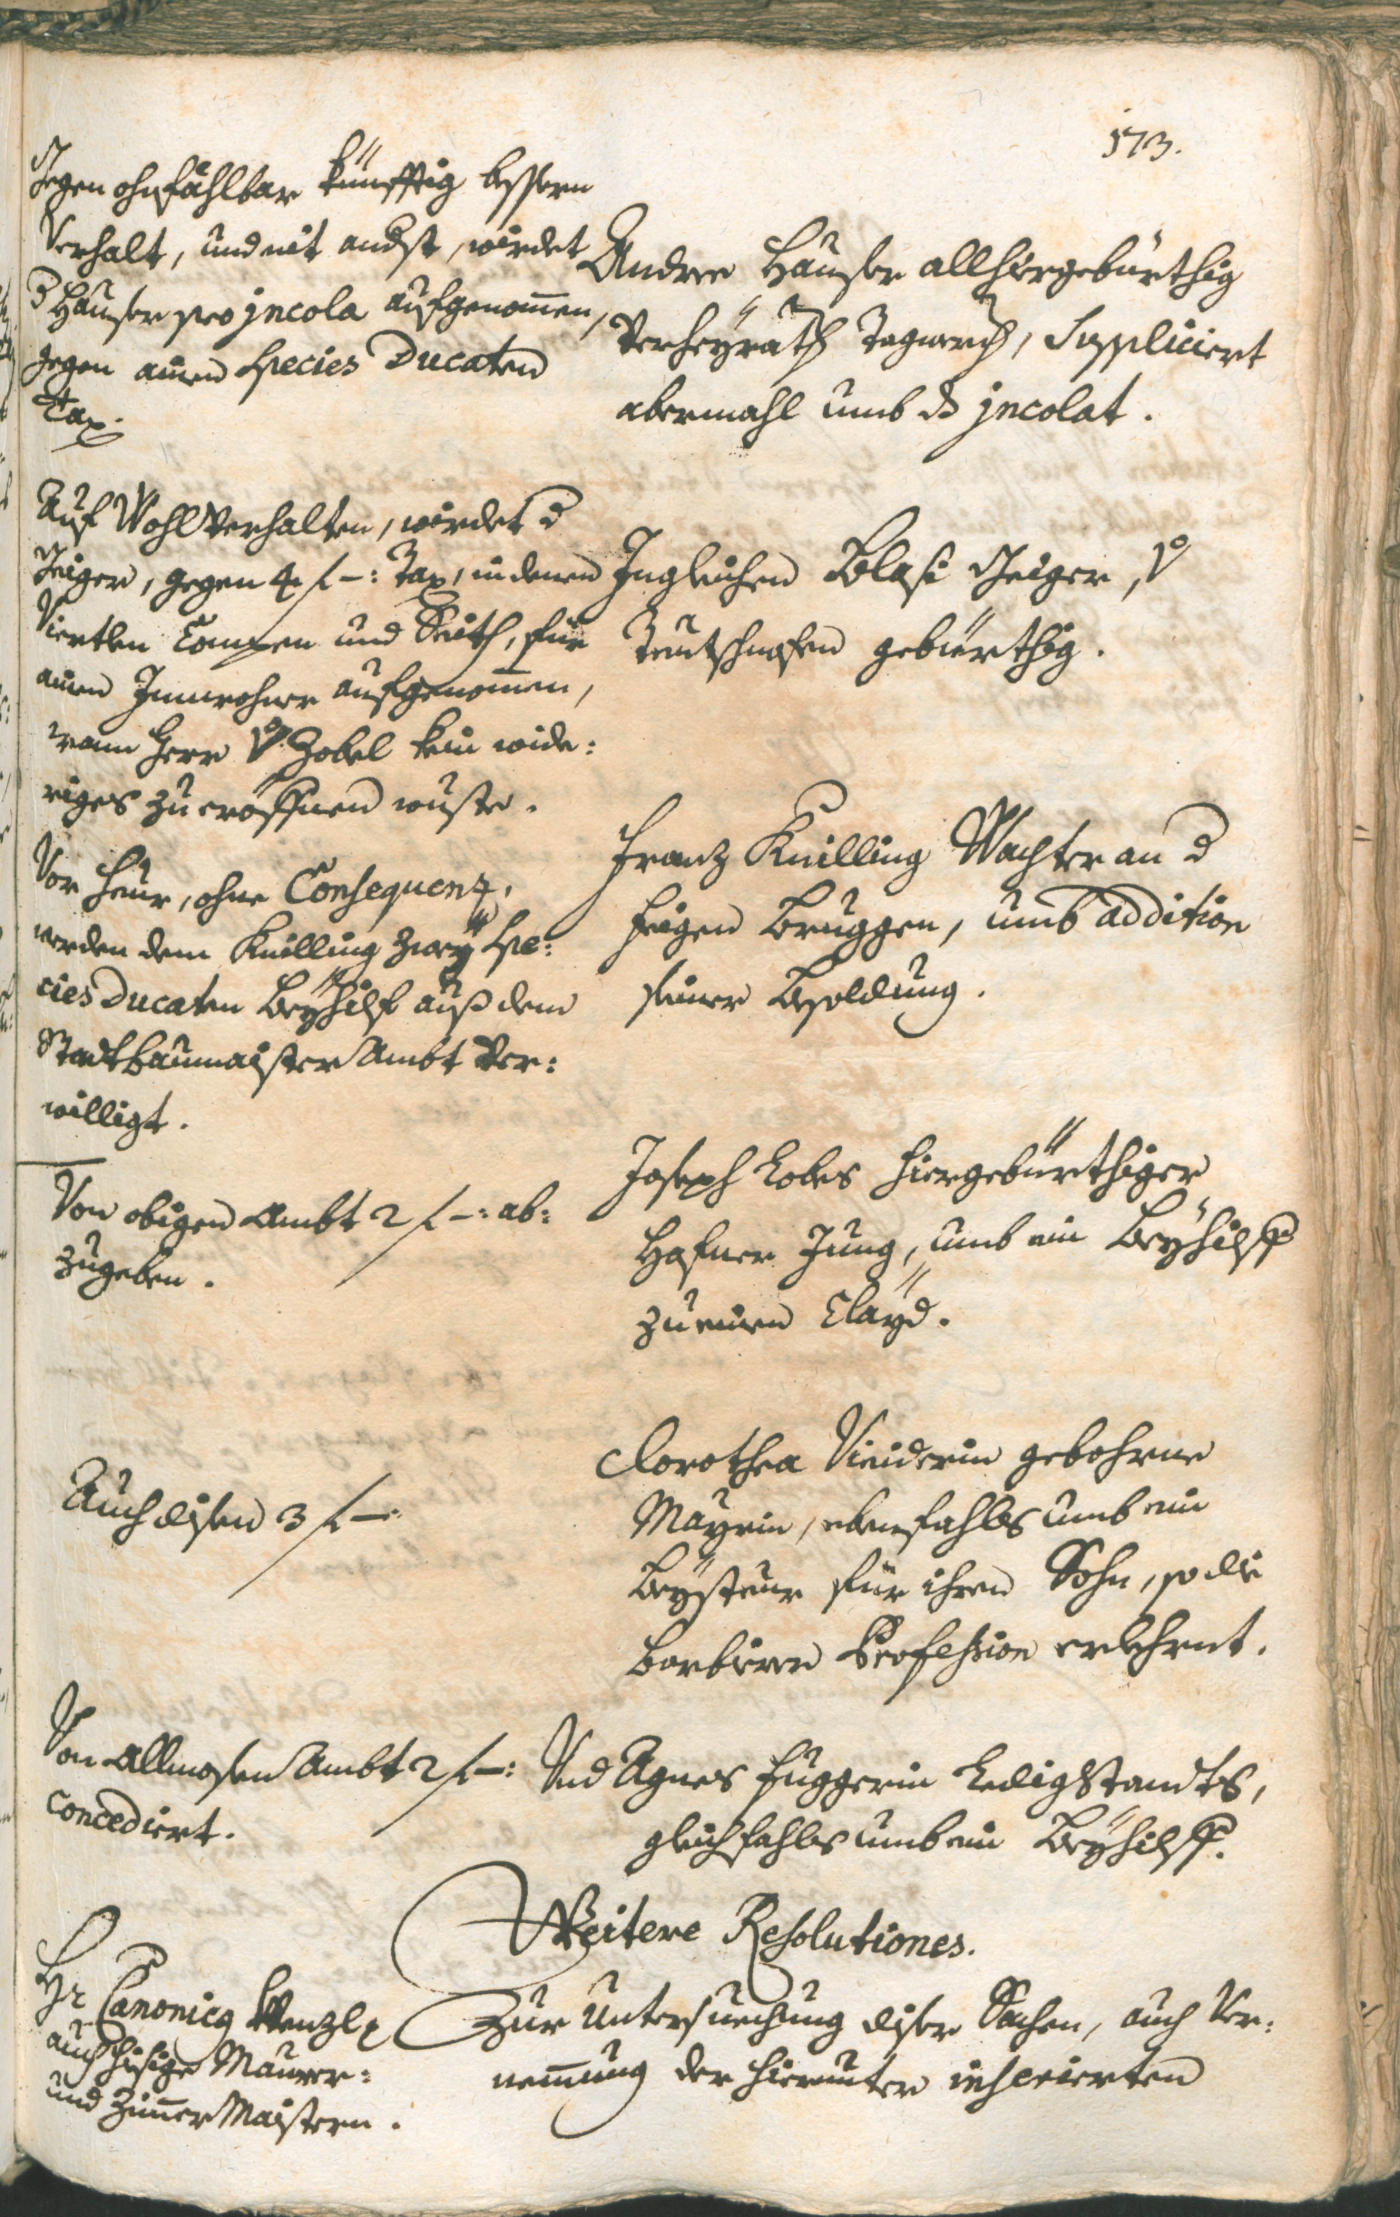 173.
Gegen ohnfählbar künfftig bessern
Verhalt, und nit andst, wirdet
d Hauser pro jncola aufgenommen,
gegen ainen Species Ducaten
Tax.
Andree Hauser allhiergebürthig
Verheyrath Tagwerch, Suppliciert
abermahl umb dz jncolat.
Auf Wohlverhalten, wirdet d
Geiger, gegen 4 f –: Tax, in denen
Viertlen Campen und Seith, für
ainen Innwohner aufgenommen,
wann Herr v. Zobel kein wide:
riges zu eröffnen wuste.
Ingleichen Blasi Geiger, v
Teutschnofen gebürthig.
Vor heur, ohne Consequenz,
werden dem Knilling zwey Spe:
cies Ducaten Beyhilf auß dem
Stadtbaumaister Ambt Ver:
willigt.
Franz Knilling Wachter an d
heigen Bruggen, umb addition
seiner Besoldung.
Von obigen Ambt 2 f –: ab:
zugeben.
Joseph Lobes hiergebürthiger
Hafner Jung, umb ein Beyhilff
zu einen Clayd.
Auch disen 3 f –:
Dorothea Vieiderin gebohrne
Mayrin, ebenfahls umb ein
Beysteur für ihren Sohn, so die
Barbierer Profession erlehrnt.
Von Allmosen Ambt 2 f –:
concediert.
Und Agnes Fuggerin Ledig Standts,
gleichfahls umb ein Beyhilff.
Weitere Resolutiones.
Hr Canonicq Wenzl
auch hisige Maurer:
und Zimmer Maistern.
Zur Untersuechung diser Sachen, auch Ver:
nemmung der hierunter inserierten